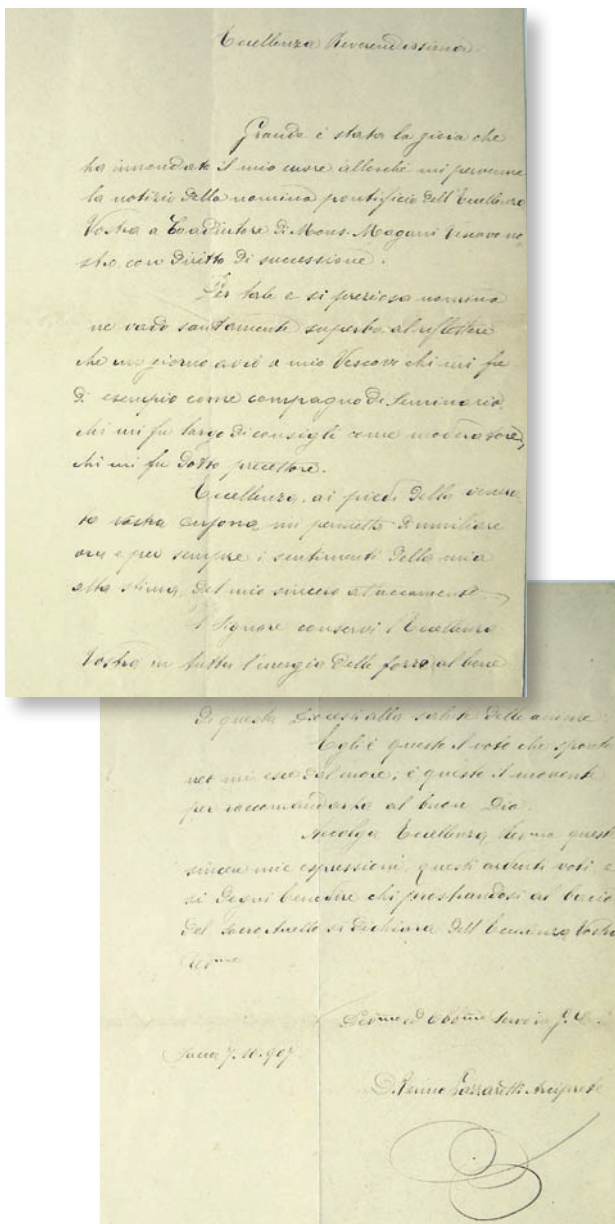 Eccellenza Reverendissima
Grande è stata la gioia che
ha innondato il mio cuore allorché mi pervenne
la notizia della nomina pontificia dell'Eccellenza
Vostra a Coadiutore di Mons. Magani Vescovo no-
stro, con diritto di successione.
Per tale e sì preziosa nomina
ne vado santamente superbo al riflettere
che un giorno avrò a mio Vescovo chi mi fu
di esempio come compagno di Seminario,
chi mi fu largo di consigli come moderatore,
chi mi fu dotto precettore.
Eccellenza, ai piedi della venera-
ta vostra persona mi permetto di umiliare
ora e per sempre i sentimenti della mia
alta stima, del mio sincero attaccamento.
Il Signore conservi l'Eccellenza
Vostra in tutta l'energia delle forze al bene
di questa Diocesi alla salute delle anime.
Egli è questo il voto che sponta-
neo mi esce dal cuore, è questo il movente
per raccomandarla al buon Dio.
Accolga Eccellenza Rev.ma questi
sinceri mie espressioni, questi ardenti voti e
si degni benedire chi prostrandosi al bacio
del Sacro Anello si dichiara dell'Eminenza Vostra
Rev.ma
Dev.mo ed Obb.mo Servo in
7. 10. 907
D. Arciprete